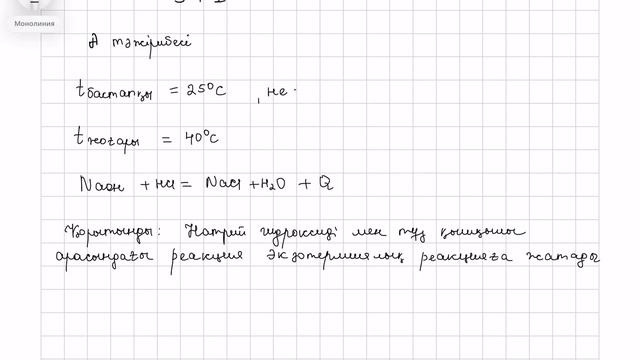 Монолиния
А тәжірибесі
t бастапқы = 25°C , не
t жоғары = 40°C
NaOH + HCl = NaCl + H₂O + Q
Қорытынды: Натрий гидроксиді мен тұз қышқылы
арасындағы реакция экзотермиялық реакцияға жатады